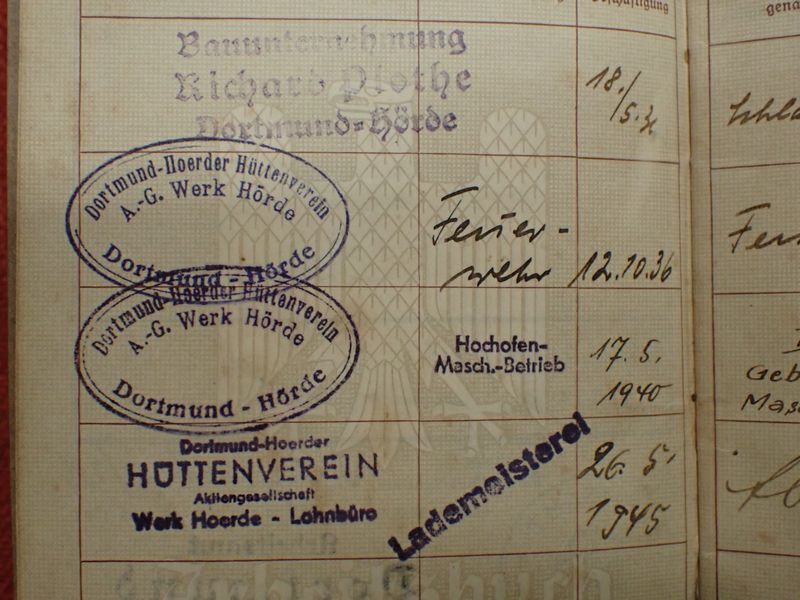 Beschäftigung
Bauunternehmung
Richard Plothe
Dortmund-Hörde
18./5.36
Dortmund-Hoerder Hüttenverein
A.-G. Werk Hörde
Dortmund - Hörde
Feuer-
wehr
12.10.36
Dortmund-Hoerder Hüttenverein
A.-G. Werk Hörde
Dortmund - Hörde
Hochofen-
Masch.-Betrieb
17.5.
1940
Dortmund-Hoerder
HÜTTENVEREIN
Aktiengesellschaft
Werk Hoerde - Lohnbüro
Lademeisterei
26.5.
1945
Geb
Masc